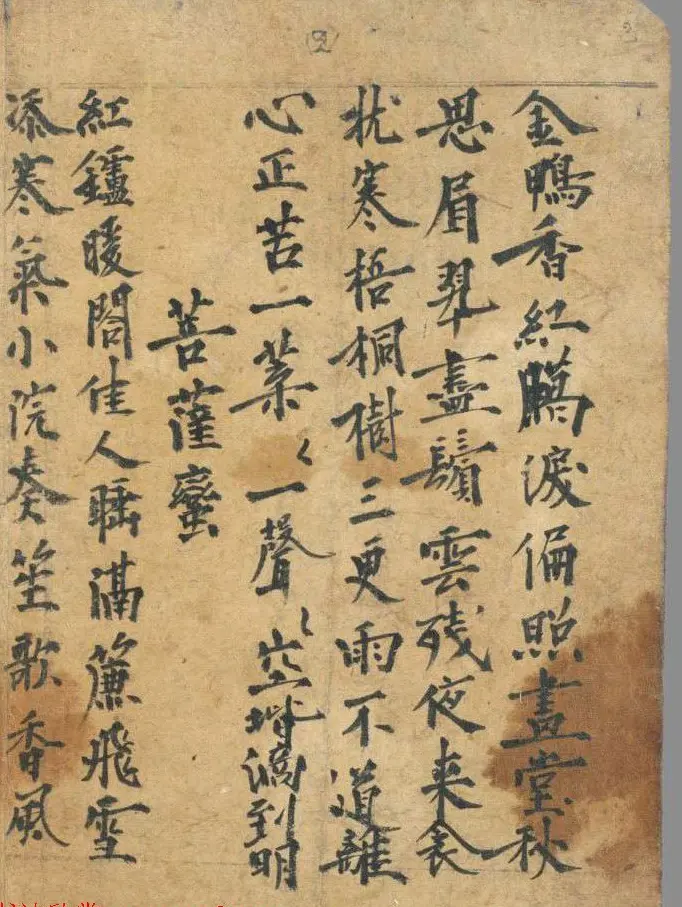 金鴨香紅臈淚偏照畫堂秋
思眉翠盡鬢雲残夜来衾
枕寒梧桐樹三更雨不道離
心正苦一葉〻一聲〻空堦滴到明
菩薩蠻
紅鑪暖閣佳人睡隔簾飛雪
添寒氣小院奏笙歌香風